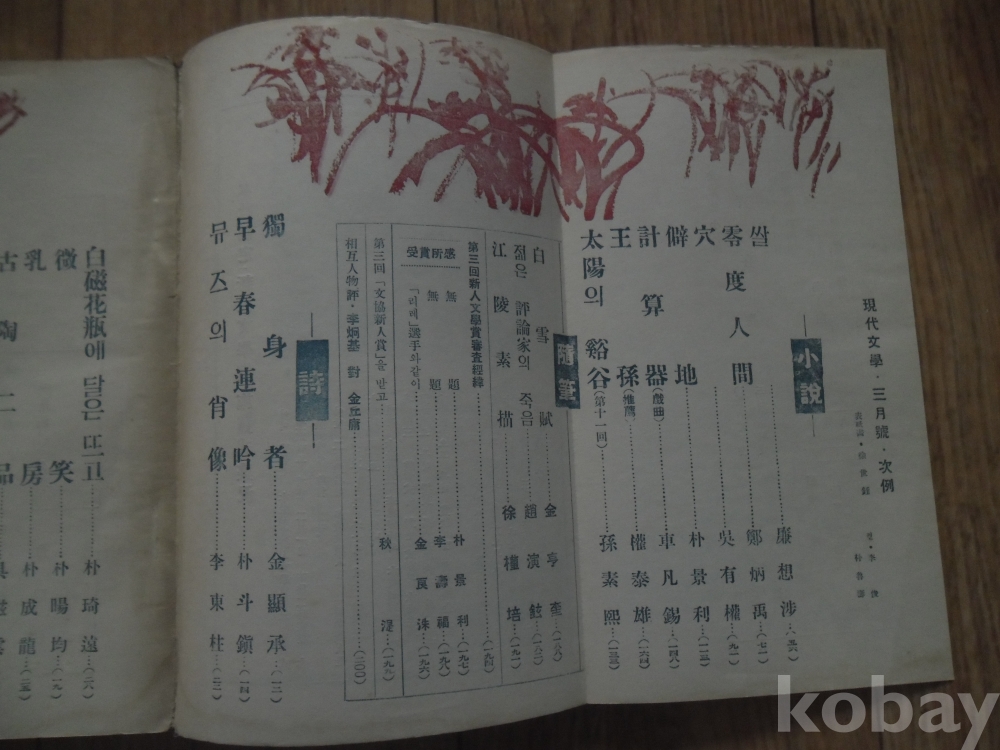 現代文學·三月號·次例
小說
쌀 廉想涉
零度人間 鄭炳禹 (七一)
穴 吳有權 (九一)
僻地 朴景利 (一一三)
計算器 (戱曲) 車凡錫 (一四六)
王孫 (推薦) 權泰雄 (一六四)
太陽의 谿谷 (第十一回) 孫素熙 (一三三)
隨筆
白雪賦 金亨奎 (一八八)
젊은 評論家의 죽음 趙演鉉
江陵素描 徐權培 (一九一)
第三回新人文學賞審査經緯 (一九六)
受賞所感
無題 朴景利 (一九七)
無題 李壽福 (一九八)
「리레」選手와같이 金良洙 (一九六)
第三回「文協新人賞」을 받고 秋湜 (一九九)
相互人物評·李炯基 對 金 (二〇〇)
詩
獨身者 金顯承 (一二)
早春連吟 朴斗鎭 (一四)
뮤즈의 肖像 李東柱 (二二)
白磁花瓶에 담은 뜨고 朴琦遠 (一六)
微笑 朴暘均 (一九)
乳房 朴成龍 (二五)
古陶二品 具滋雲
kobay